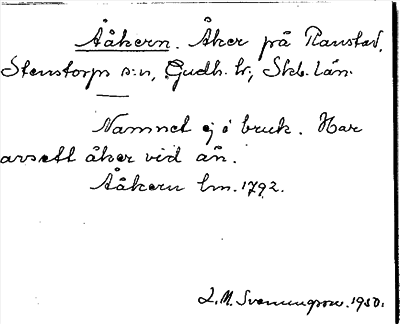 Ååkern. Åker på Ranstad,
Stenstorps s:n, Gudh. hr; Skb. län.
Namnet ej i bruk. Har
avsett åker vid ån.
Ååkern lm. 1792.
L. M. Svenungsson. 1930.